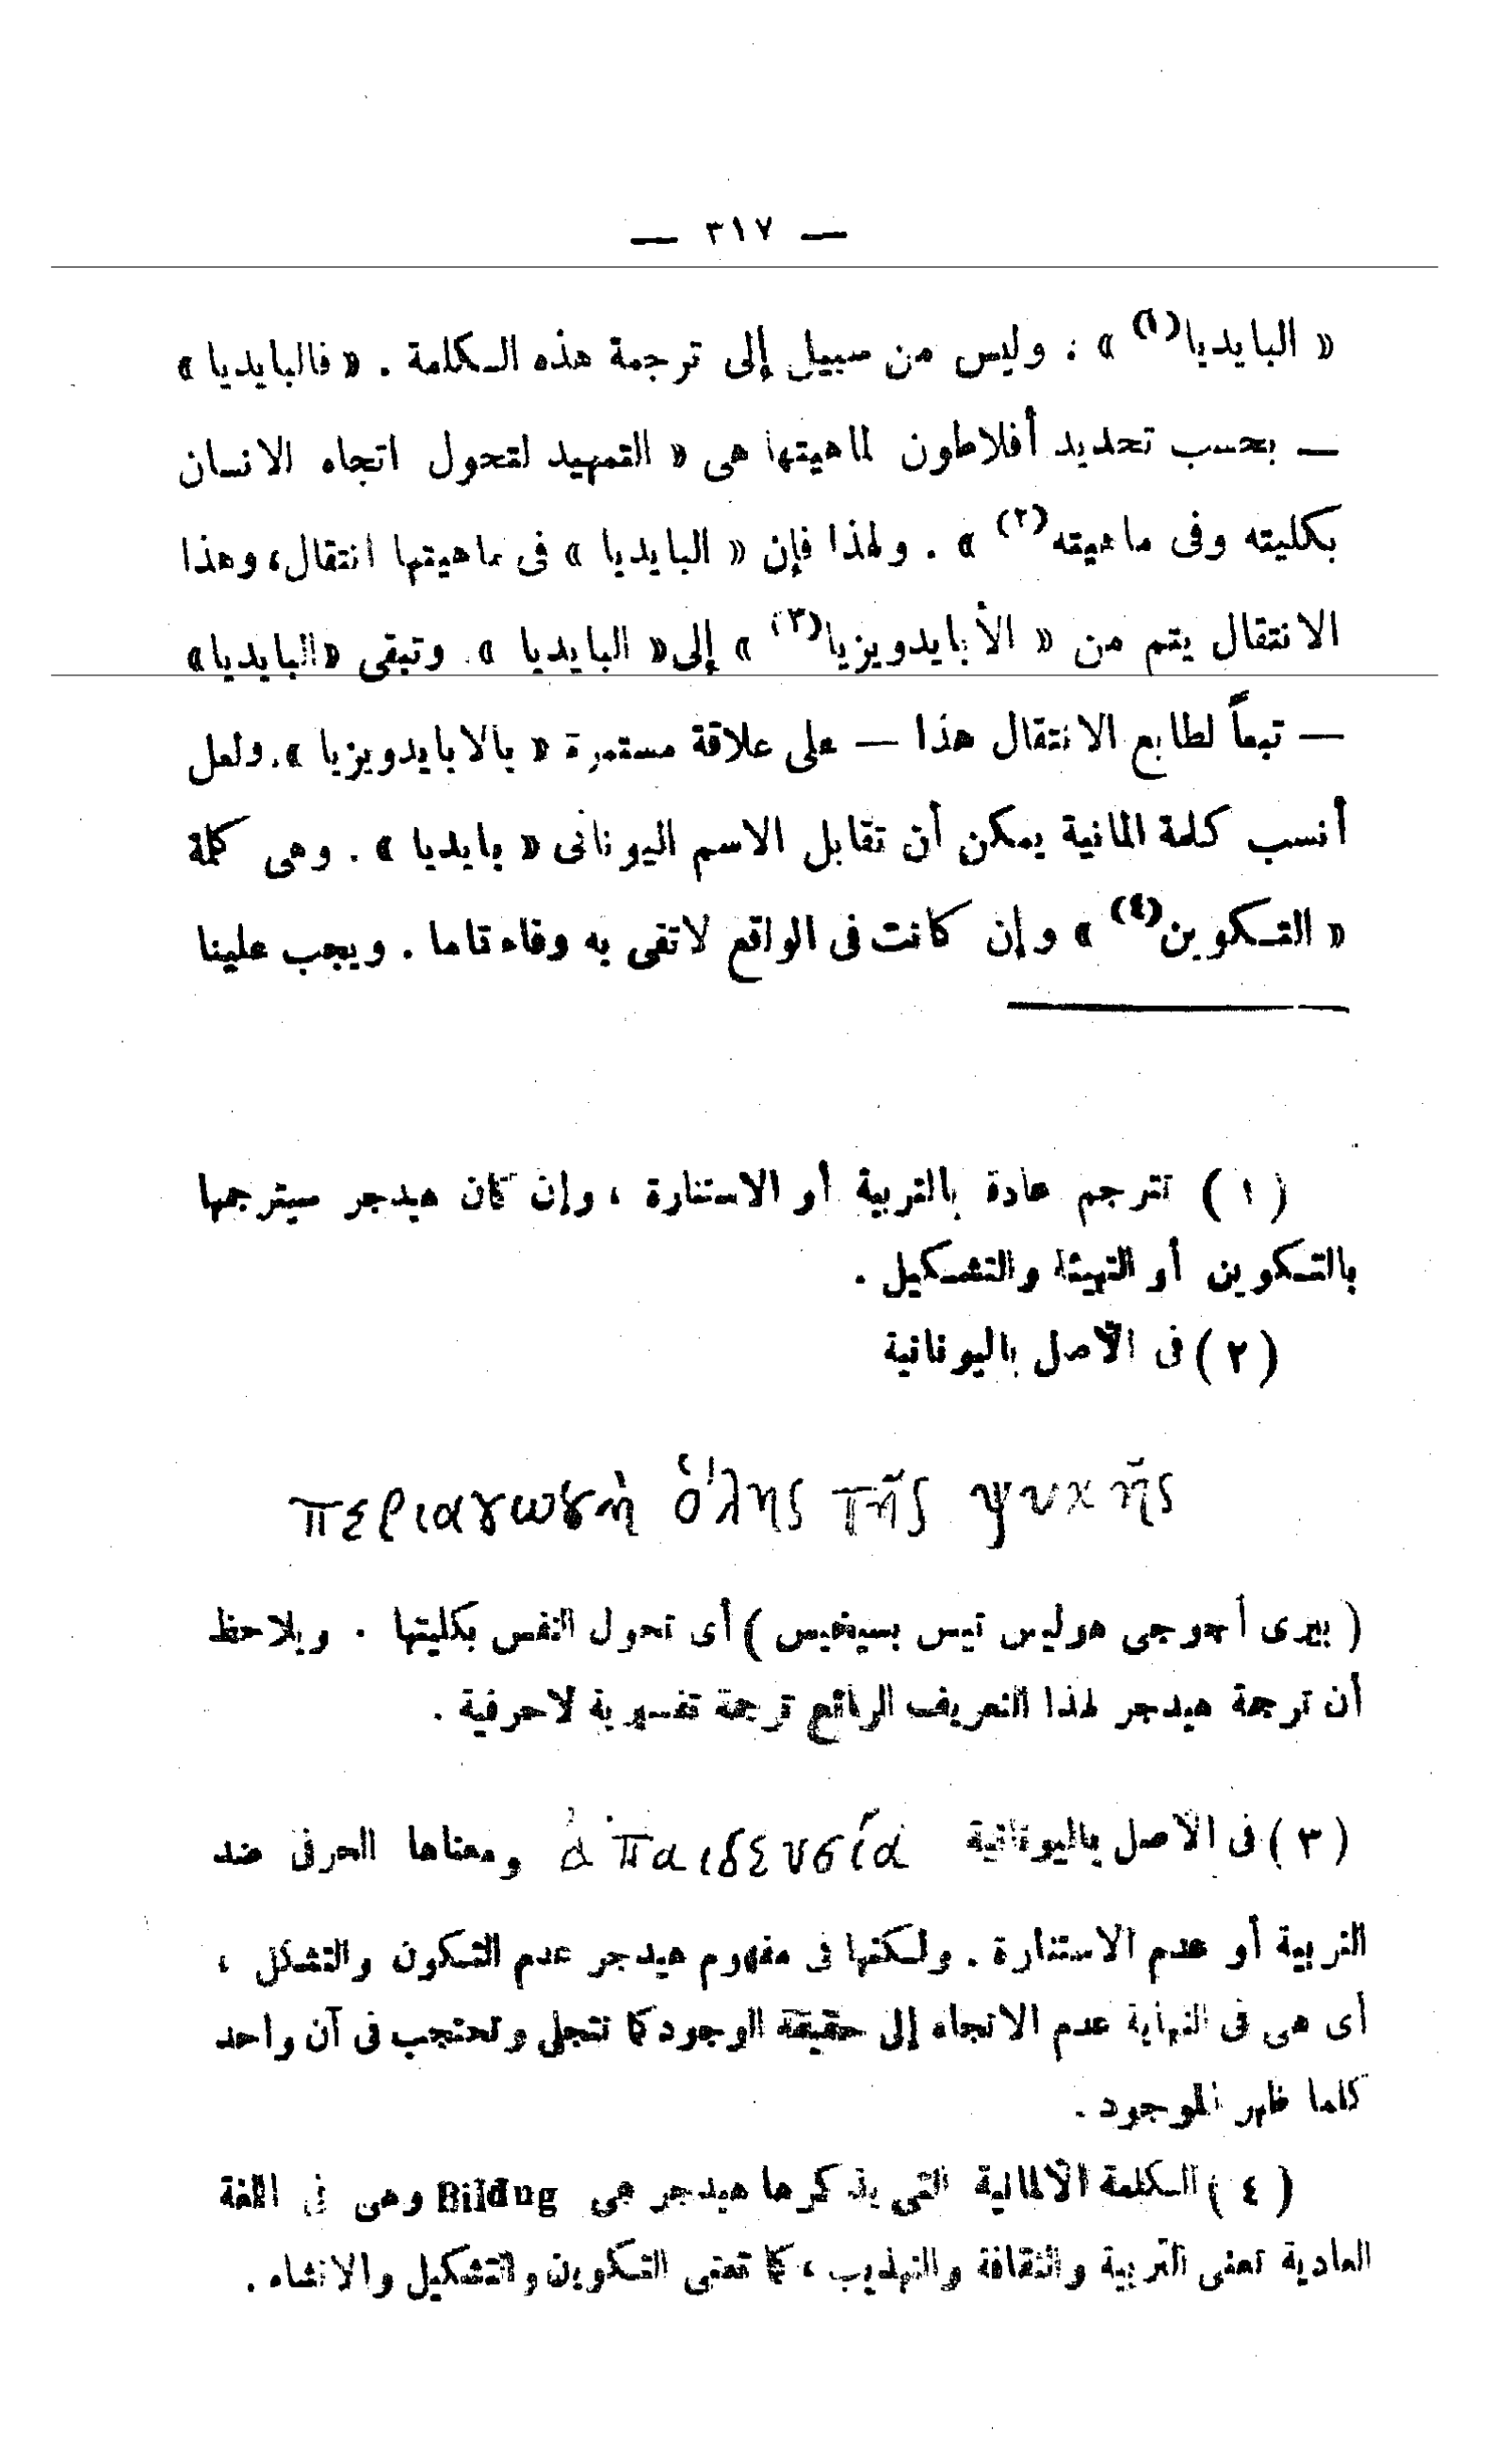 — ٣١٧ —
« البايديا(١) » ؛ وليس من سبيل إلى ترجمة هذه الكلمة . « فالبايديا »
— بحسب تحديد أفلاطون لماهيتها هى « التمهيد لتحول اتجاه الانسان
بكليته وفى ماهيته(٢) » . ولهذا فإن « البايديا » فى ماهيتها انتقال، وهذا
الانتقال يتم من « الأبايدويزيا(٣) » إلى « البايديا » . وتبقى «البايديا»
— تبعاً لطابع الانتقال هذا — على علاقة مستمرة « بالابايدويزيا ». ولعل
أنسب كلمة المانية يمكن أن تقابل الاسم اليونانى « بايديا » . وهى كلمة
« التكوين(٤) » وإن كانت فى الواقع لاتفى به وفاء تاما . ويجب علينا
( ١ ) تترجم عادة بالتربية أو الاستنارة ، وإن كان هيدجر سيترجمها
بالتكوين أو التهيئة والتشكيل .
( ٢ ) فى الأصل باليونانية
περιαγωγὴ ὅλης τῆς ψυχῆς
( بيرى أجوجى هوليس تيس بسيخيس ) أى تحول النفس بكليتها . ويلاحظ
أن ترجمة هيدجر لهذا التعريف الرائع ترجمة تفسيرية لاحرفية .
( ٣ ) فى الأصل باليونانية ἀπαιδευσία ومعناها الحرفى ضد
التربية أو عدم الاستنارة . ولكنها فى مفهوم هيدجر عدم التكون والتشكل ،
أى هى فى النهاية عدم الاتجاه إلى حقيقة الوجود كما تتجلى وتحتجب فى آن واحد
كلما ظهر الموجود .
( ٤ ) الكلمة الألمانية التى يذكرها هيدجر هى Bildug وهى فى اللغة
العادية تعنى التربية والثقافة والتهذيب ، كما تعنى التكوين والتشكيل والانشاء .